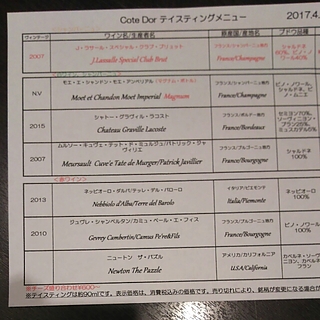 Cote Dor テイスティングメニュー 2017.4.
ヴィンテージ ワイン名/生産者名 原産国/産地名 ブドウ品種
2007 J・ラサール・スペシャル・クラブ・ブリュット
J.Lassalle Special Club Brut
フランス/シャンパーニュ地方
France/Champagne
シャルドネ
NV モエ・エ・シャンドン・モエ・アンペリアル(マグナム・ボトル)
Moet et Chandon Moet Imperial Magnum
フランス/シャンパーニュ地方
France/Champagne
ピノ・ノワール、シャルドネ、ピノ・ムニエ
2015 シャトー・グラヴィル・ラコスト
Chateau Graville Lacoste
フランス/ボルドー地方
France/Bordeaux
2007 ムルソー・キュヴェ・テット・ド・ミュルジェ/パトリック・ジャヴィリエ
Meursault Cuve'e Tate de Murger/Patrick Javillier
フランス/ブルゴーニュ地方
France/Bourgogne
シャルドネ
100%
2013 ネッビオーロ・ダルバ/テッレ・デル・バローロ
Nebbiolo d'Alba/Terre del Barolo
イタリア/ピエモンテ
Italia/Piemonte
ネッビオーロ
100%
2010 ジュヴレ・シャンベルタン/カミュ・ペール・エ・フィス
Gevrey Cambertin/Camus Pe're&Fils
フランス/ブルゴーニュ地方
France/Bourgogne
ピノ・ノワール
100%
ニュートン ザ・パズル
Newton The Puzzle
アメリカ/カリフォルニア
USA/California
※チーズ盛り合わせ¥600〜
※テイスティングは約90mlです。表示価格は、消費税込みの価格です。売り切れにより、銘柄が変更になる場合が